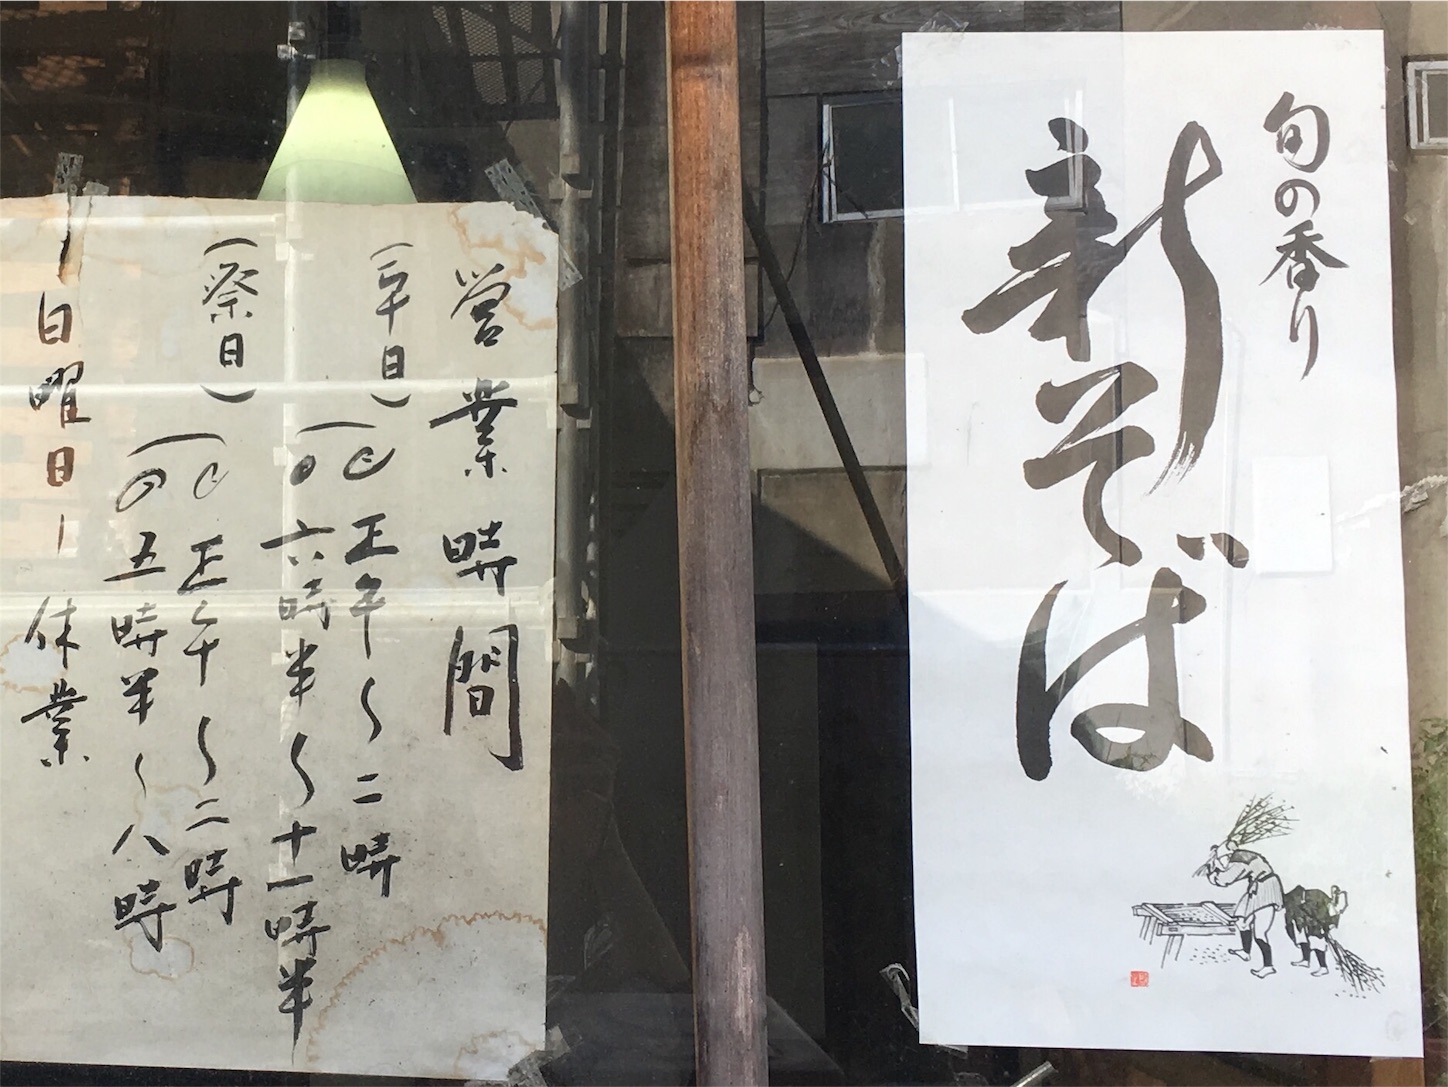 旬の香り
新そば
営業時間
(平日)
正午〜二時
六時半〜十一時半
(祭日)
正午〜二時
五時半〜八時
ー日曜日ー休業